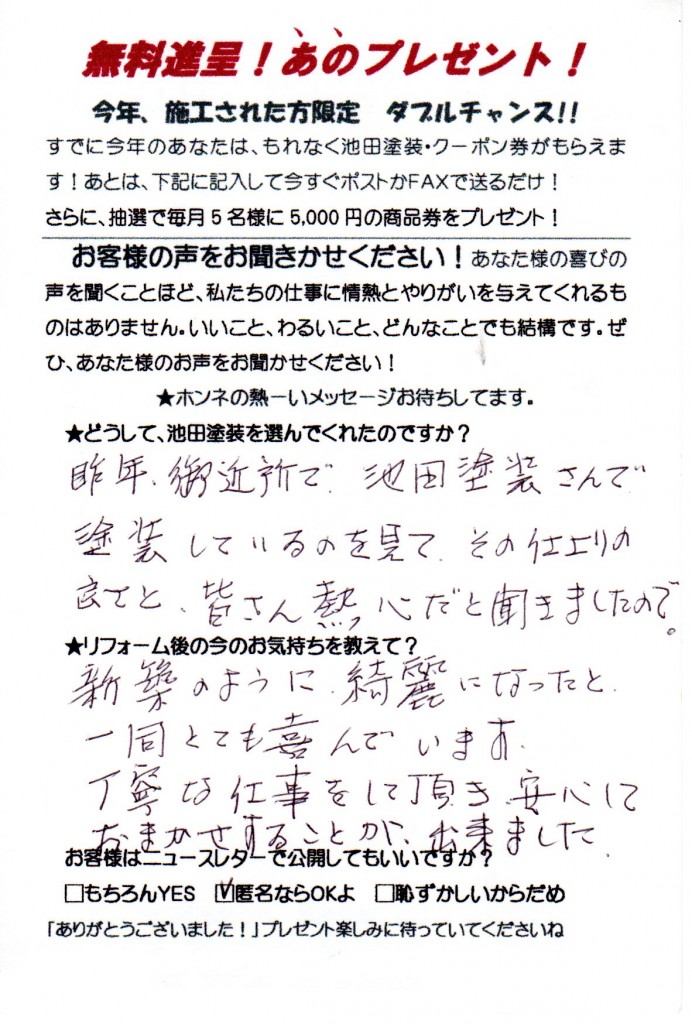 無料進呈！あのプレゼント！
今年、施工された方限定　ダブルチャンス!!
すでに今年のあなたは、もれなく池田塗装・クーポン券がもらえま
す！あとは、下記に記入して今すぐポストかFAXで送るだけ！
さらに、抽選で毎月５名様に5,000円の商品券をプレゼント！
お客様の声をお聞きかせください！あなた様の喜びの
声を聞くことほど、私たちの仕事に情熱とやりがいを与えてくれるも
のはありません。いいこと、わるいこと、どんなことでも結構です。ぜ
ひ、あなた様のお声をお聞かせください！
★ホンネの熱ーいメッセージお待ちしてます。
★どうして、池田塗装を選んでくれたのですか？
昨年、御近所で、池田塗装さんで
塗装しているのを見て、その仕上りの
良さと、皆さん熱心だと聞きましたので。
★リフォーム後の今のお気持ちを教えて？
新築のように、綺麗になったと、
一同とても喜んでいます。
丁寧な仕事をして頂き、安心して
おまかせすることが、出来ました。
お客様はニュースレターで公開してもいいですか？
□もちろんYES　☑匿名ならOKよ　□恥ずかしいからだめ
「ありがとうございました！」プレゼント楽しみに待っていてくださいね